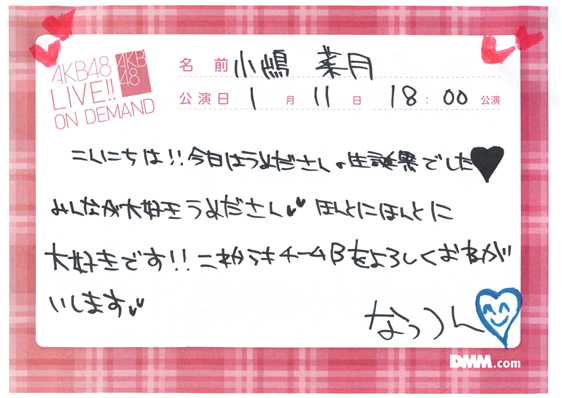 AKB48
LIVE!!
ON DEMAND
AKB
48
名前 小嶋 菜月
公演日 1月11日 18:00 公演
こんにちは!!今日はうめださんの生誕祭でした♥
みんなが大好きうめださん♥ ほんとにほんとに
大好きです!!これからもチームBをよろしくおねが
いします♥
なっつん
DMM.com